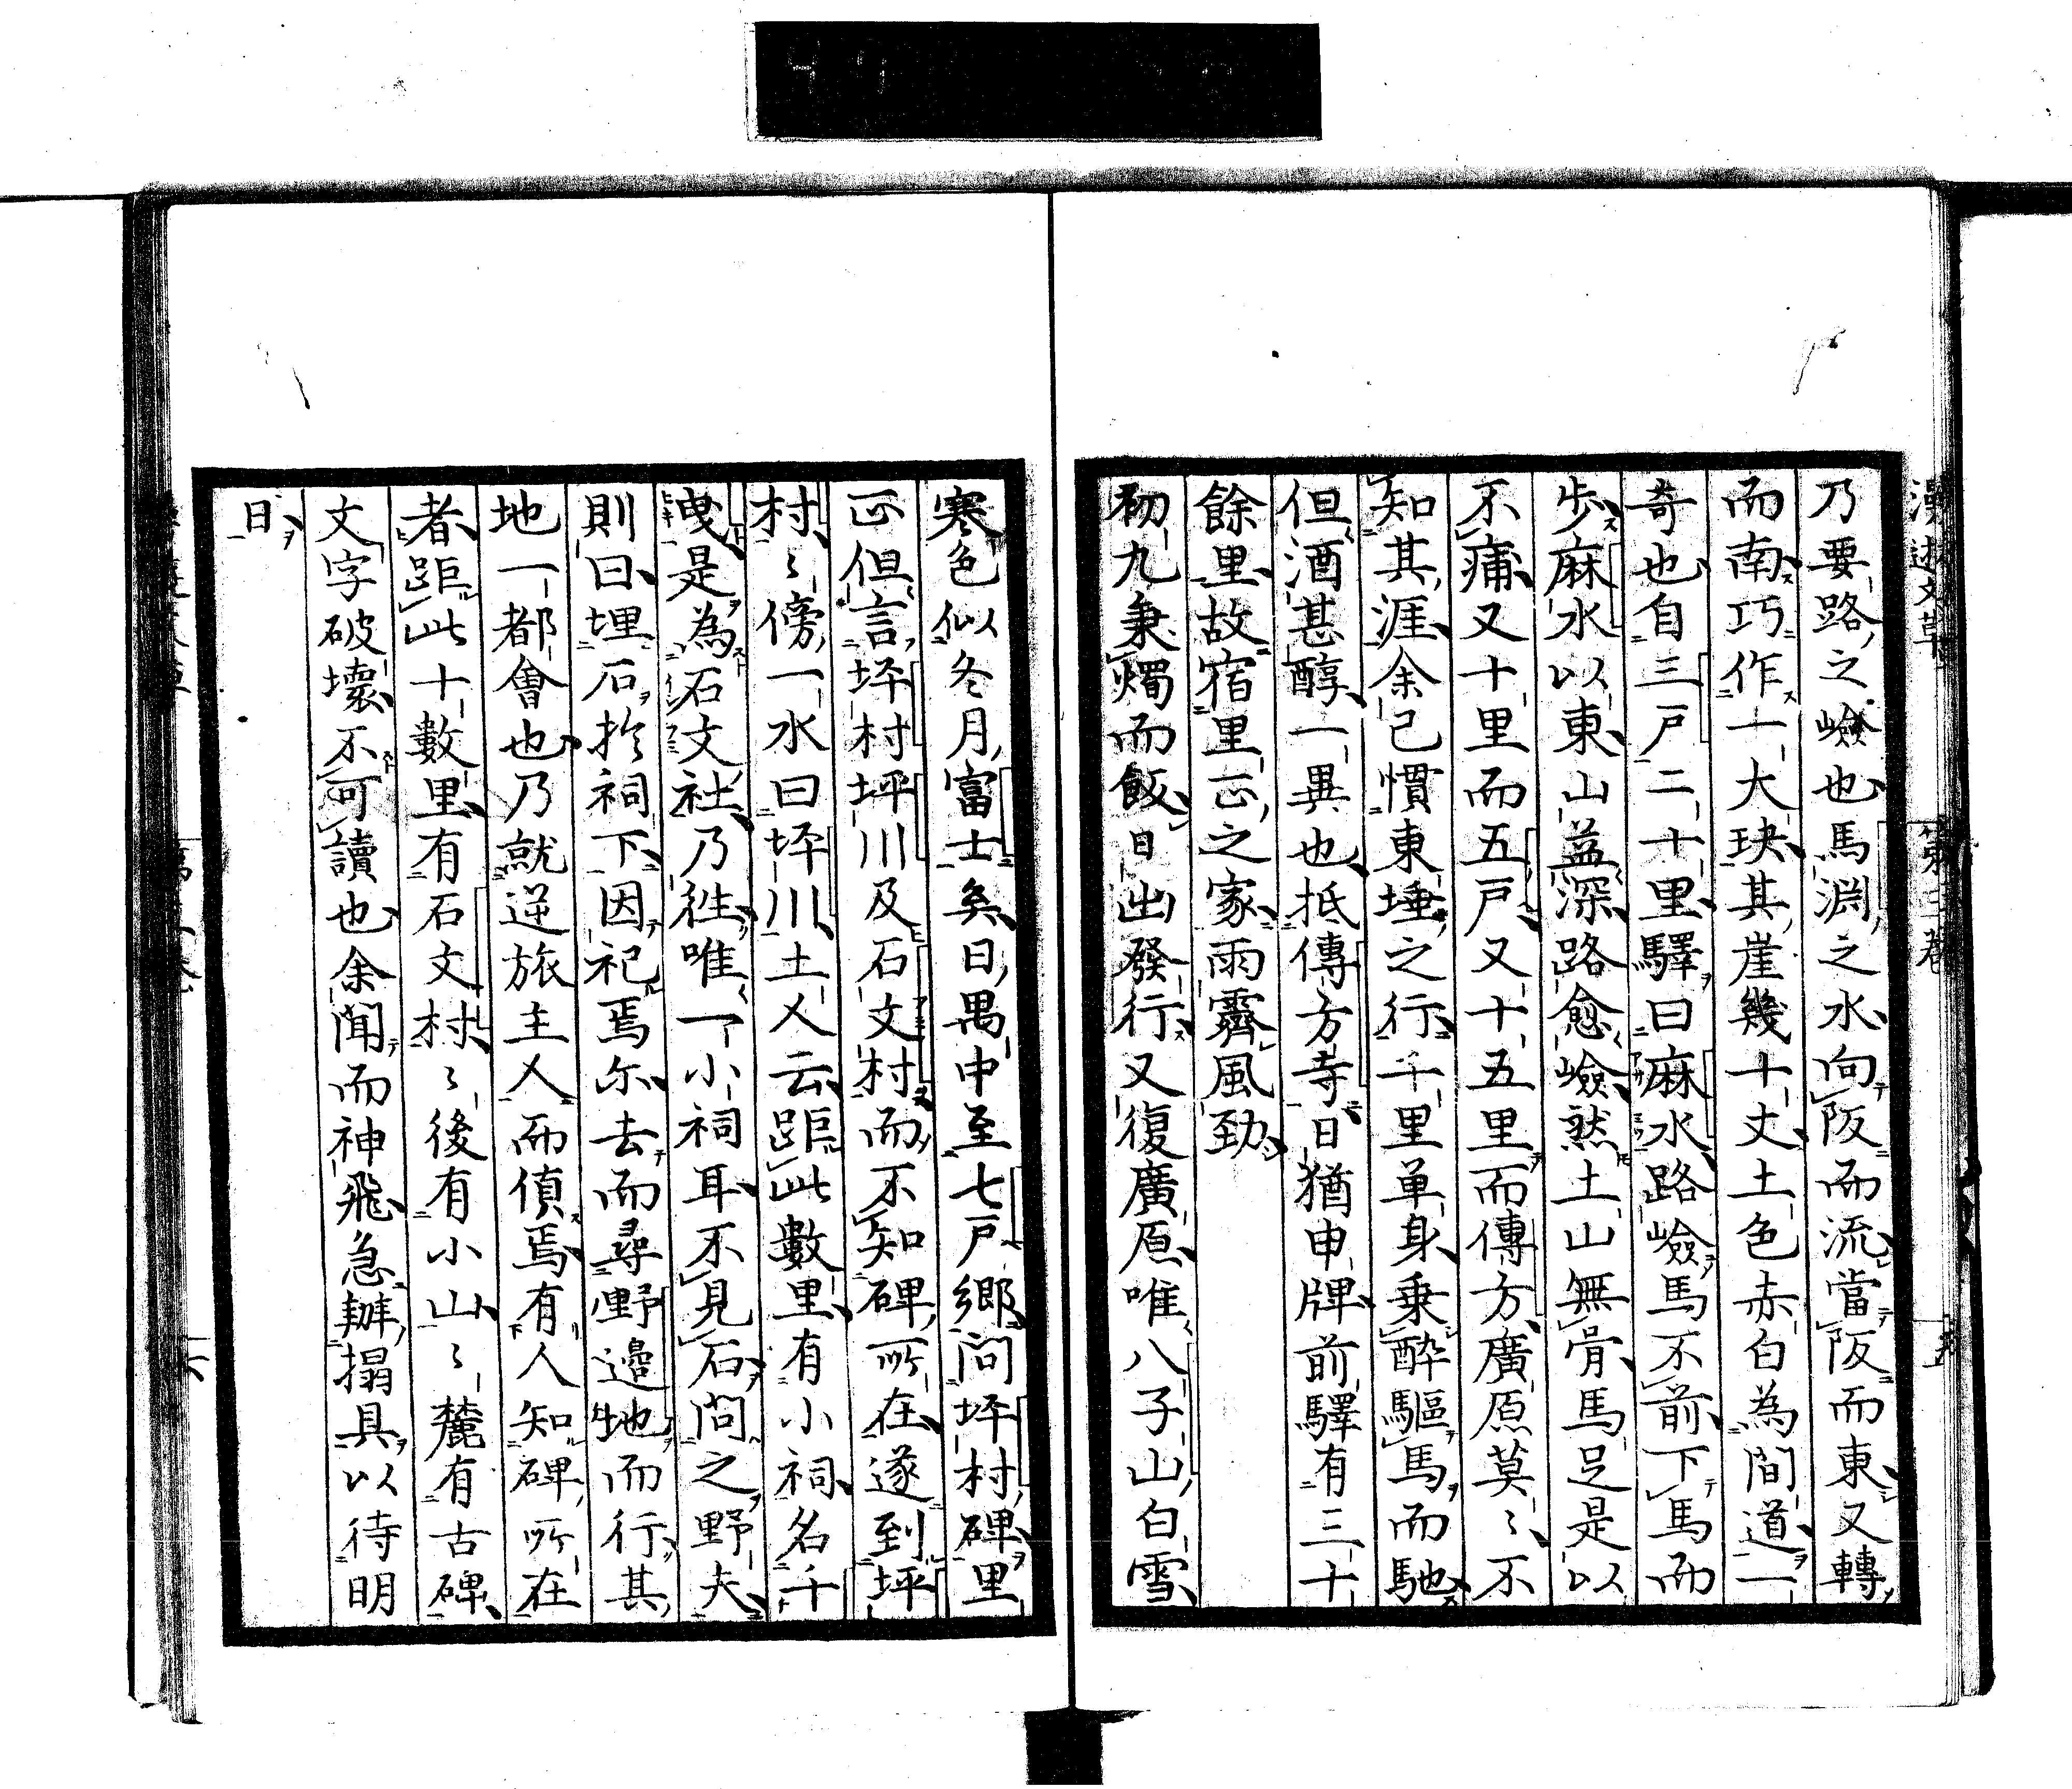 乃要路之嶮也馬淵之水向阪而流當阪而東又轉
而南巧作一大玦其崖幾十丈土色赤白為間道一
奇也自三戸二十里驛曰麻水路嶮馬不前下馬而
歩麻水以東山益深路愈嶮然土山無骨馬足是以
不痡又十里而五戸又十五里而傳方廣原莫〻不
知其涯余已慣東埵之行千里単身乗醉驅馬而馳
但酒甚醇一異也抵傳方寺日猶申牌前驛有三十
餘里故宿里正之家雨霽風勁
初九秉燭而飯日出發行又復廣原唯八子山白雪
寒色似冬月富士矣日禺中至七戸郷問坪村碑里
正但言坪村坪川及石文村而不知碑所在遂到坪
村〻傍一水曰坪川土人云距此數里有小祠名千
曳是為石文社乃往唯一小祠耳不見石問之野夫
則曰埋石於祠下因祀焉尓去而尋野邉地而行其
地一都會也乃就逆旅主人而偵焉有人知碑所在
者距此十數里有石文村〻後有小山〻麓有古碑
文字破壊不可讀也余聞而神飛急辦搨具以待明
日